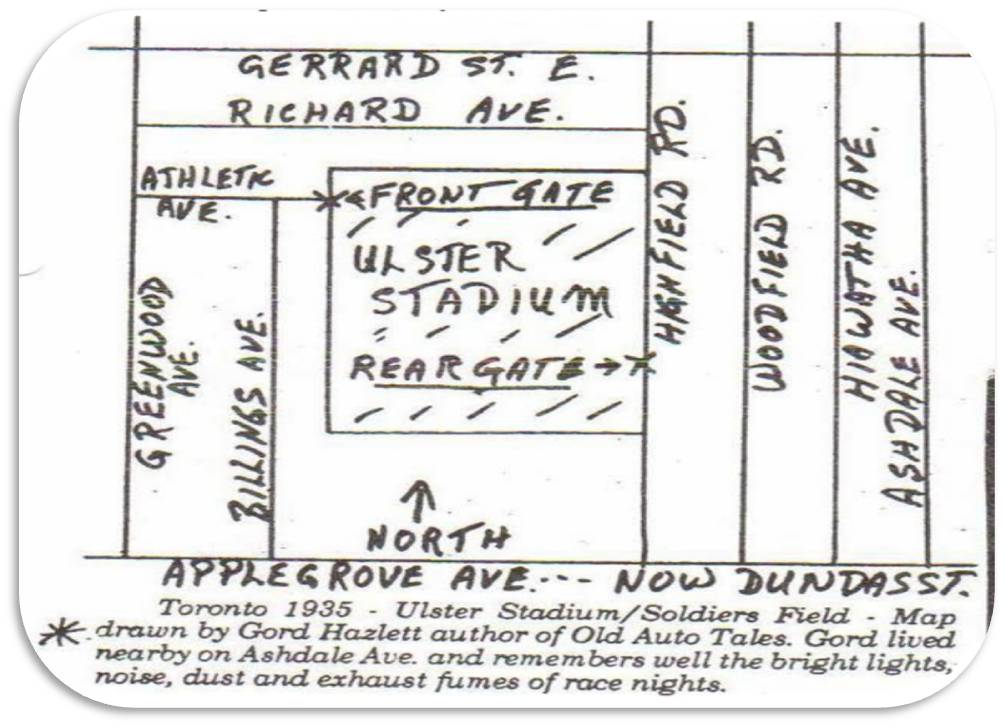 GERRARD ST. E.
RICHARD AVE.
ATHLETIC
AVE.
FRONT GATE
ULSTER
STADIUM
REAR GATE
GREENWOOD
AVE.
BILLINGS AVE.
HIGHFIELD RD.
WOODFIELD RD.
HIAWATHA AVE.
ASHDALE AVE.
NORTH
APPLEGROVE AVE. --- NOW DUNDAS ST.
Toronto 1935 - Ulster Stadium/Soldiers Field - Map
drawn by Gord Hazlett author of Old Auto Tales. Gord lived
nearby on Ashdale Ave. and remembers well the bright lights,
noise, dust and exhaust fumes of race nights.